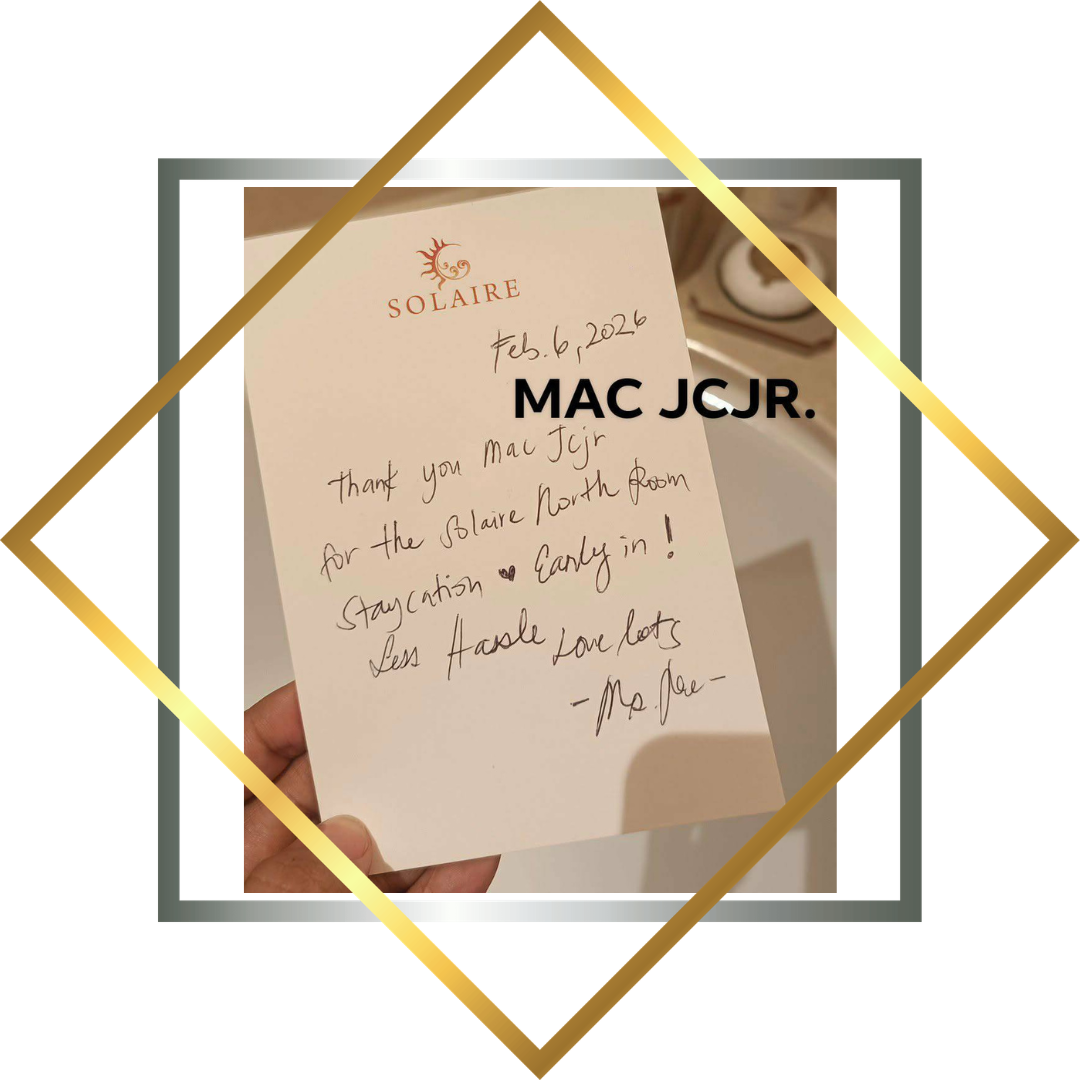 SOLAIRE
Feb. 6, 2026
MAC JCJR.
Thank you Mac Jcjr
for the Solaire North Room
Staycation ♥ Early in !
Less Hassle Love lots